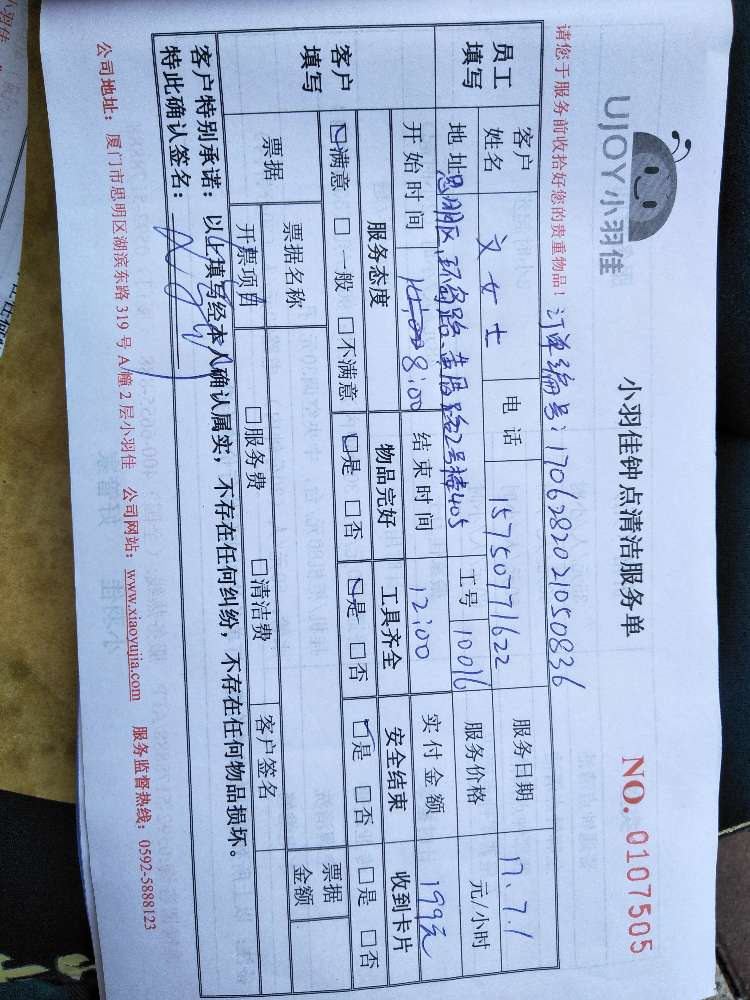 UJOY小羽佳
小羽佳钟点清洁服务单
NO. 0107505
请您于服务前收拾好您的贵重物品!
订单编号:1706282021050836
员工填写
客户姓名 文女士 电话 15750771622 服务日期 17.7.1
地址 思明区, 环岛路, 黄厝路2号楼405 工号 10016 服务价格 元/小时
开始时间 8:00 结束时间 12:00 实付金额 199元
客户填写
服务态度 物品完好 工具齐全 安全结束 收到卡片
☑满意 □一般 □不满意 ☑是 □否 ☑是 □否 ☑是 □否 □是 □否
票据 票据名称 票据金额
开票项目 □服务费 □清洁费 客户签名
客户特别承诺:以上填写经本人确认属实,不存在任何纠纷,不存在任何物品损坏。
特此确认签名:
公司地址:厦门市思明区湖滨东路 319 号 A 幢 2 层小羽佳 公司网站:www.xiaoyujia.com 服务监督热线:0592-5888123